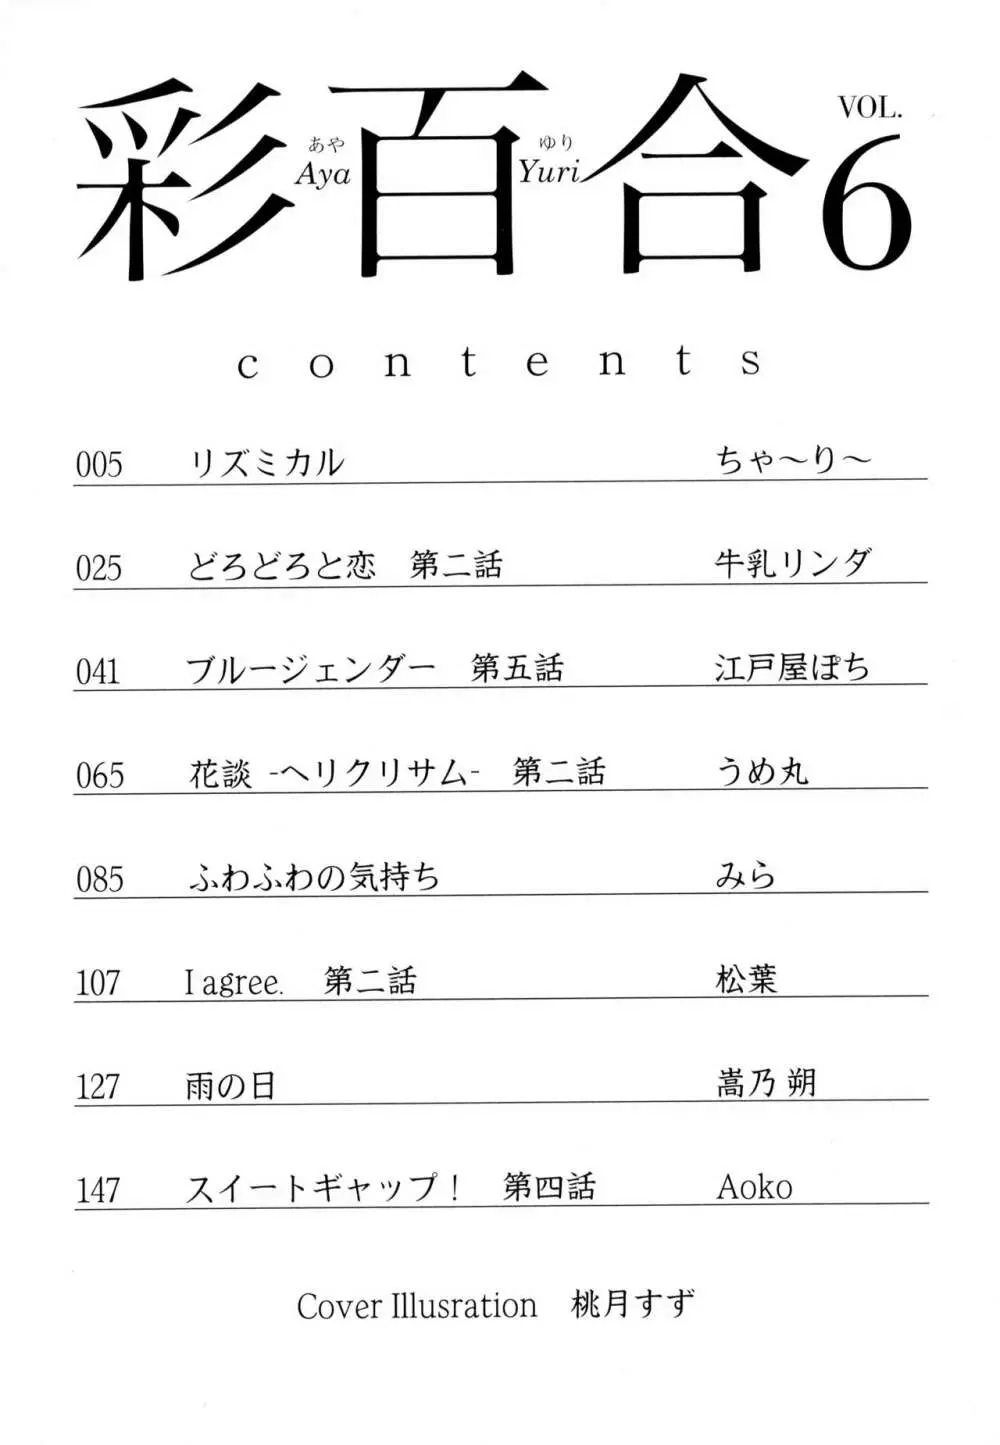 彩百合 VOL. 6
あや ゆり
Aya Yuri
contents
005 リズミカル ちゃ〜り〜
025 どろどろと恋 第二話 牛乳リンダ
041 ブルージェンダー 第五話 江戸屋ぽち
065 花談 -ヘリクリサム- 第二話 うめ丸
085 ふわふわの気持ち みら
107 I agree. 第二話 松葉
127 雨の日 嵩乃 朔
147 スイートギャップ！ 第四話 Aoko
Cover Illusration 桃月すず